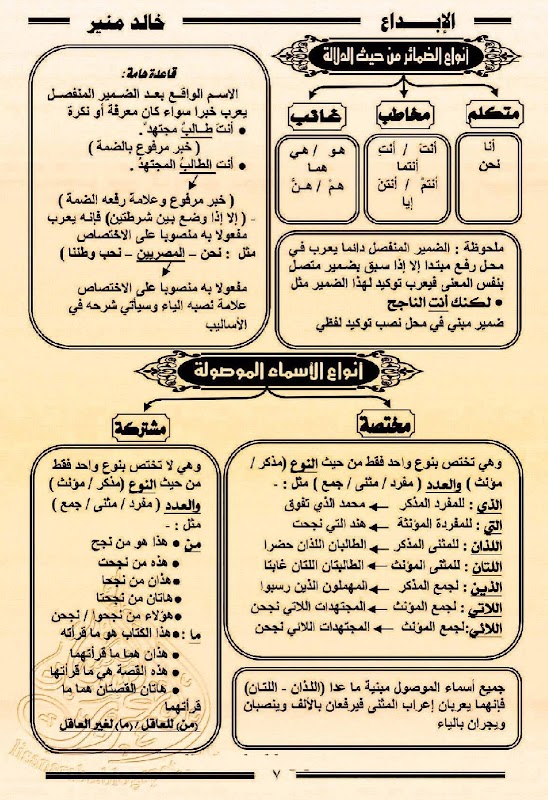 الإبــداع
خالد منير
أنواع الضمائر من حيث الدلالة
متكلم
مخاطب
غائب
أنا
نحن
أنتَ / أنتِ
أنتما
أنتمْ / أنتنَ
إيا
هو / هي
هما
همْ / هـنَّ
ملحوظة : الضمير المنفصل دائما يعرب في
محل رفع مبتدا إلا إذا سبق بضمير متصل
بنفس المعنى فيعرب توكيد لهذا الضمير مثل
• لكنك أنت الناجح
ضمير مبني في محل نصب توكيد لفظي
قاعدة هامة:
الاسم الواقع بعد الضمير المنفصل
يعرب خبرا سواء كان معرفة أو نكرة
• أنت طالبُ مجتهدٌ.
( خبر مرفوع بالضمة )
• أنت الطالبُ المجتهدُ.
( خبر مرفوع وعلامة رفعه الضمة )
- ( إلا إذا وضع بين شرطتين) فإنه يعرب
مفعولا به منصوبا على الاختصاص
مثل : نحن – المصريين – نحب وطننا )
مفعولا به منصوبا على الاختصاص
علامة نصبه الياء وسيأتي شرحه في
الأساليب
أنواع الأسماء الموصولة
مختصة
مشتركة
وهي تختص بنوع واحد فقط من حيث النوع (مذكر /
مؤنث ) والعدد ( مفرد / مثنى / جمع ) مثل : -
الذي : للمفرد المذكر ← محمد الذي تفوق
التي : للمفردة المؤنثة ← هند التي نجحت
اللذان : للمثنى المذكر ← الطالبان اللذان حضرا
اللتان : للمثنى المؤنث ← الطالبتان اللتان غابتا
الذين : لجمع المذكر ← المهملون الذين رسبوا
اللاتي : لجمع المؤنث ← المجتهدات اللاتي نجحن
اللائي :لجمع المؤنث ← المجتهدات اللائي نجحن
جميع أسماء الموصول مبنية ما عدا (اللذان - اللتان)
فإنهما يعربان إعراب المثنى فيرفعان بالألف وينصبان
ويجران بالياء
وهي لا تختص بنوع واحد فقط
من حيث النوع (مذكر / مؤنث )
والعدد ( مفرد / مثنى / جمع )
مثل : -
من • هذا هو من نجح
• هذه من نجحت
• هذان من نجحا
• هاتان من نجحتا
• هؤلاء من نجحوا / نجحن
ما : • هذا الكتاب هو ما قرأته
• هذان هما ما قرأتهما
• هذه القصة هي ما قرأتها
• هاتان القصتان هما ما
قرأتهما
(من) للعاقل / (ما) لغير العاقل
٧